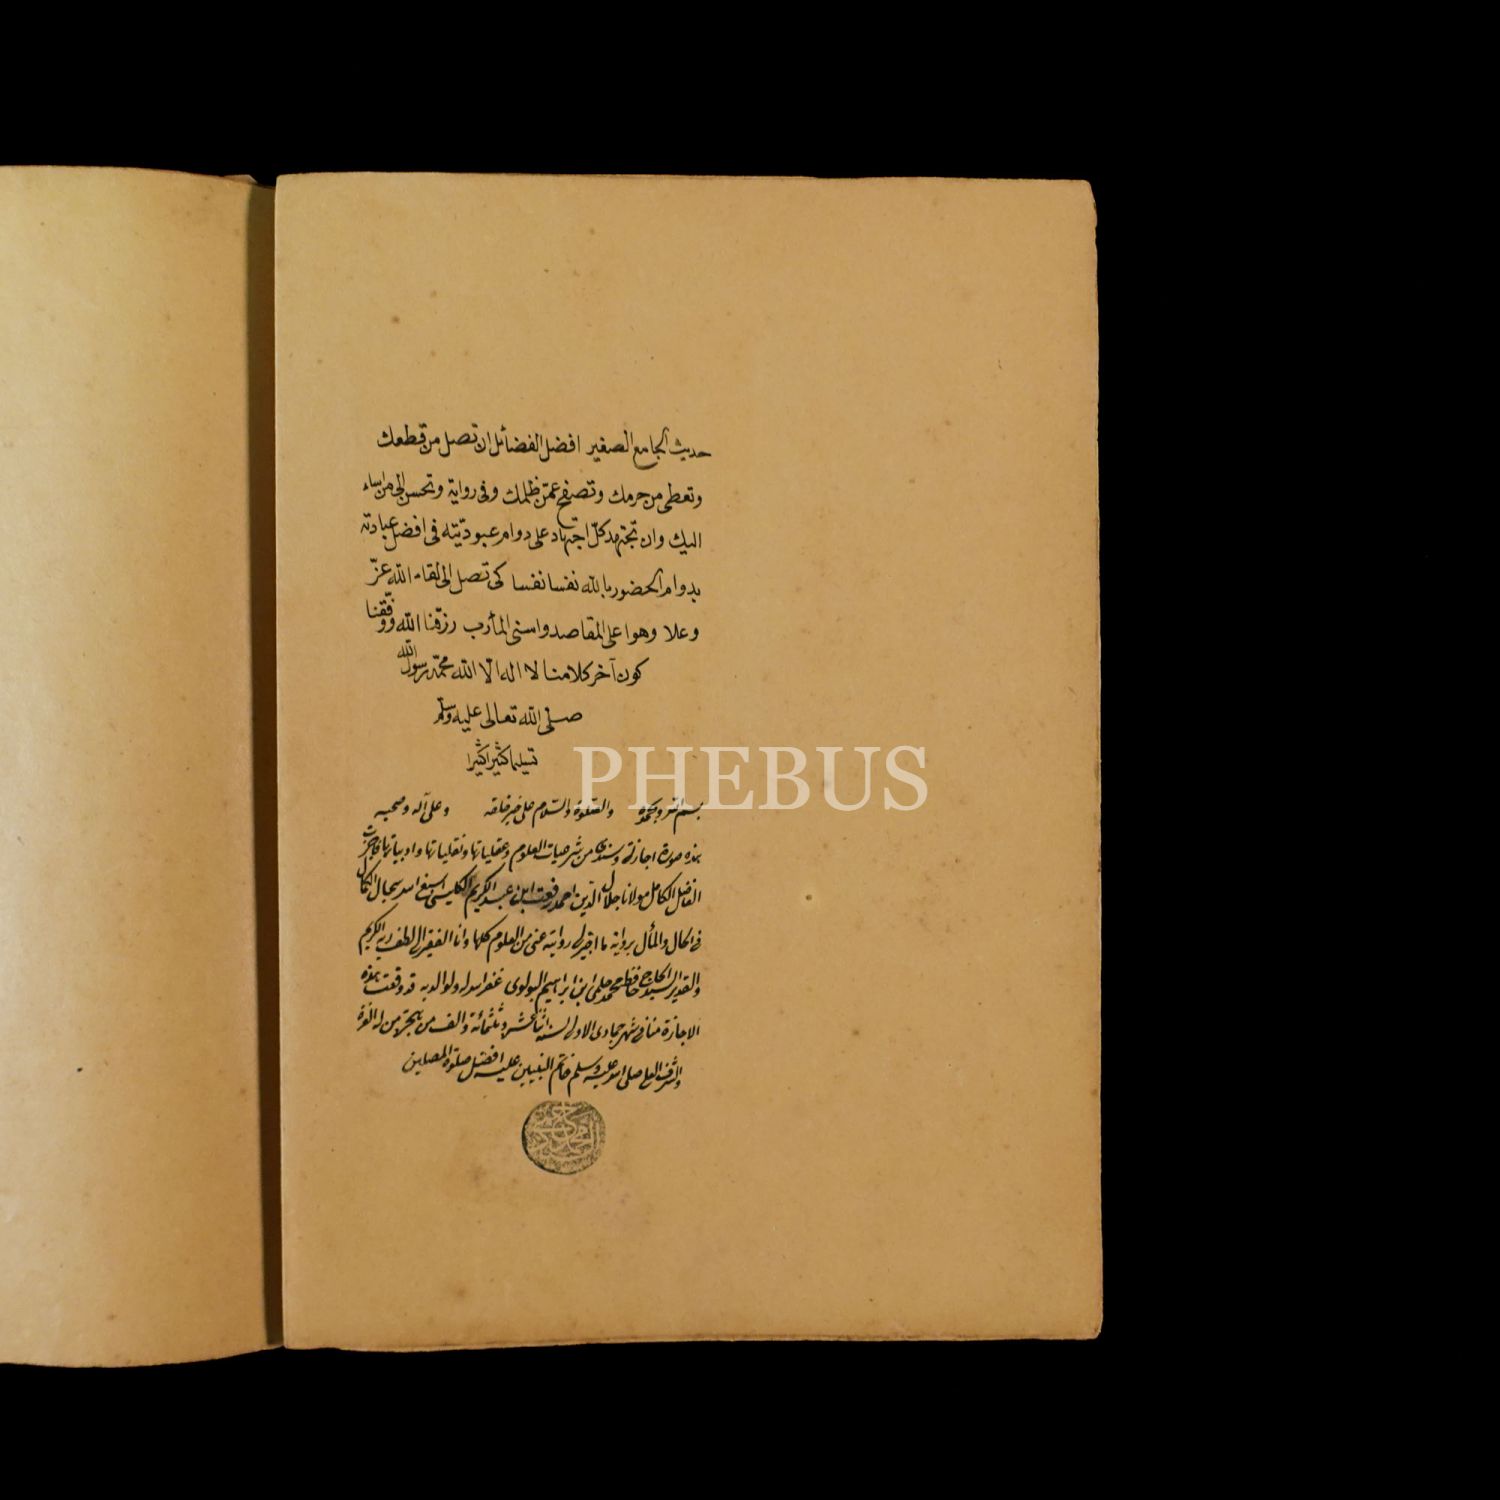 حديث الجامع الصغير افضل الفضائل ان تصل من قطعك
وتعطى من حرمك وتصفح عمّن ظلمك وفى رواية وتحسن الى من اساء
اليك وان تجتهد كلّ اجتهاد على دوام عبوديّته فى افضل عبادته
بدوام الحضور بالله نفسا نفسا كى تصل الى لقاء الله عزّ
وعلا وهو اعلى المقاصد واسنى المأرب رزقنا الله ووفّقنا
كون آخر كلامنا لا اله الا الله محمّد رسول الله
صلّى الله تعالى عليه وسلّم
تسليما كثيرا كثيرا
PHEBUS
بسم الله وبحمده والصّلوة والسّلام على خير خلقه وعلى آله وصحبه
هذه صورة اجازتى وسندى من شرعيات العلوم وعقلياتها ونقلياتها وادبياتها فاجزت
الفاضل الكامل مولانا جلال الدين احمد رفعت ابن عبد الكريم الكليسى اسبغ الله سجال الكمال
فى الحال والمأل برواية ما اجيز لى روايته عنى من العلوم كلها وانا الفقير الى لطف ربه الكريم
والقدير السيد الحاج حافظ محمد حلمى ابن ابراهيم البولوى غفر الله له ولوالديه قد وقعت هذه
الاجازة منا فى شهر جمادى الاولى لسنة اثنا عشر وثلثمائة والف من هجرة من له العزة
والشرف العلى صلى الله عليه وسلم خاتم النبيين عليه افضل صلوة المصلين